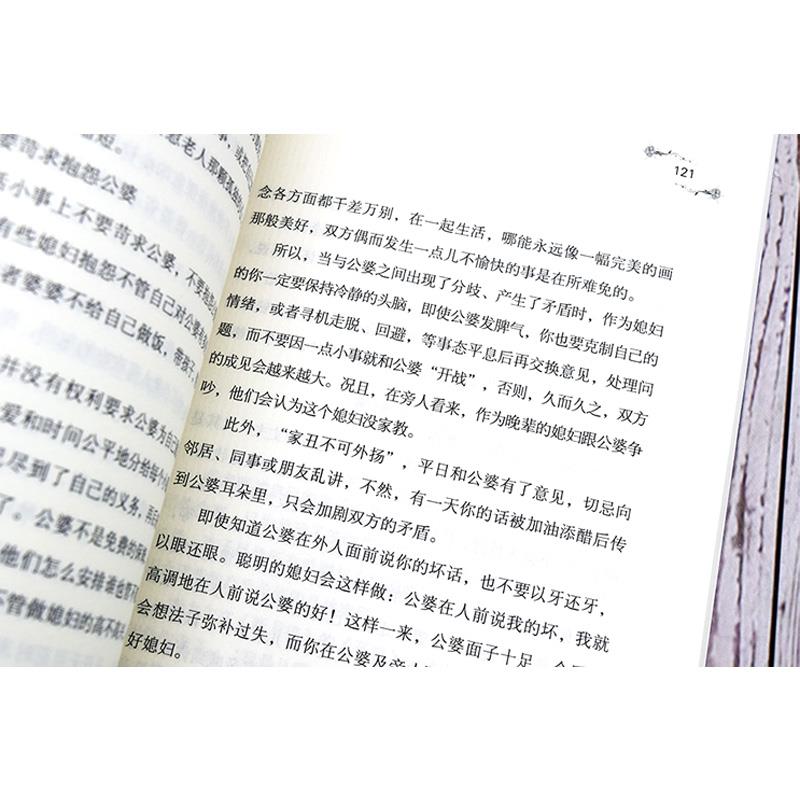 要苛求抱怨公婆
小事上不要苛求公婆，不要
有些媳妇抱怨不管自己对公婆
者婆婆不给自己做饭，带孩
并没有权利要求公婆为自己
爱和时间公平地分给每个
尽到了自己的义务，
了。公婆不是免费的保
他们怎么安排谁也管不
管做媳妇的高不高
121
念各方面都千差万别，在一起生活，哪能永远像一幅完美的画
那般美好，双方偶而发生一点儿不愉快的事是在所难免的。
所以，当与公婆之间出现了分歧、产生了矛盾时，作为媳妇
的你一定要保持冷静的头脑，即使公婆发脾气，你也要克制自己的
情绪，或者寻机走脱、回避，等事态平息后再交换意见，处理问
题，而不要因一点小事就和公婆“开战”，否则，久而久之，双方
的成见会越来越大。况且，在旁人看来，作为晚辈的媳妇跟公婆争
吵，他们会认为这个媳妇没家教。
此外，“家丑不可外扬”，平日和公婆有了意见，切忌向
邻居、同事或朋友乱讲，不然，有一天你的话被加油添醋后传
到公婆耳朵里，只会加剧双方的矛盾。
即使知道公婆在外人面前说你的坏话，也不要以牙还牙，
以眼还眼。聪明的媳妇会这样做：公婆在人前说我的坏，我就
高调地在人前说公婆的好！这样一来，公婆面子十足，
会想法子弥补过失，而你在公婆及旁人
好媳妇。